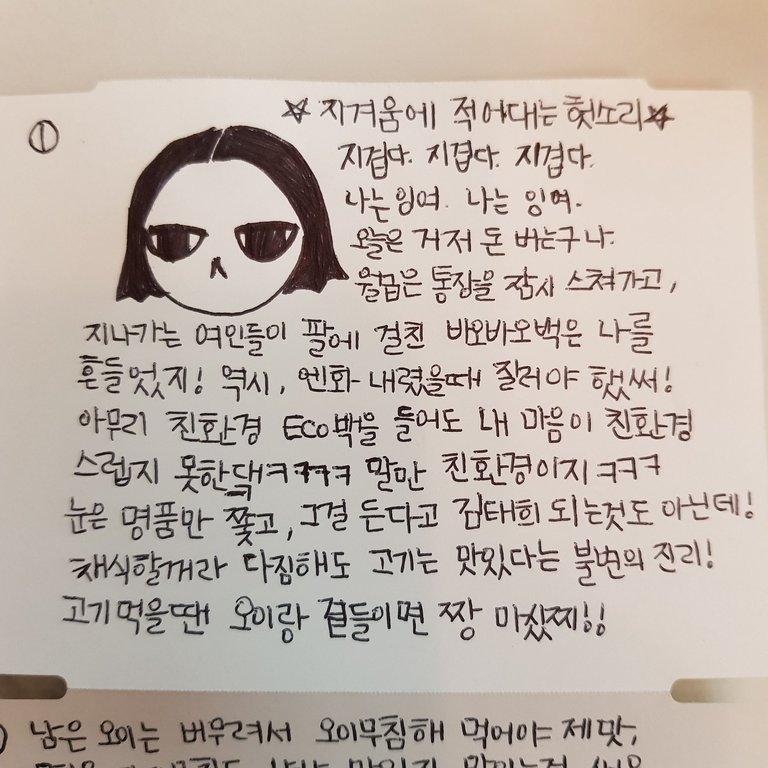 ① ☆ 지겨움에 적어대는 헛소리 ☆
지겹다. 지겹다. 지겹다.
나는 잉여. 나는 잉여.
오늘은 거저 돈 버는구나.
월급은 통장을 잠시 스쳐가고,
지나가는 여인들이 팔에 걸친 바오바오백은 나를
흔들었지! 역시, 엔화 내렸을때 질러야 했써!
아무리 친환경 Eco백을 들어도 내 마음이 친환경
스럽지 못한댘ㅋㅋㅋㅋ 말만 친환경이지 ㅋㅋㅋ
눈은 명품만 쫓고, 그걸 든다고 김태희 되는것도 아닌데!
채식할꺼라 다짐해도 고기는 맛있다는 불변의 진리!
고기먹을땐 오이랑 곁들이면 짱 마싰찌!!
남은 오이는 버무려서 오이무침해 먹어야 제맛,